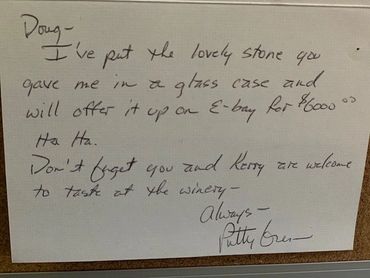 Doug-
I've put the lovely stone you
gave me in a glass case and
will offer it up on E-bay for $6000⁰⁰
Ha Ha.
Don't forget you and Kerry are welcome
to taste at the winery-
Always-